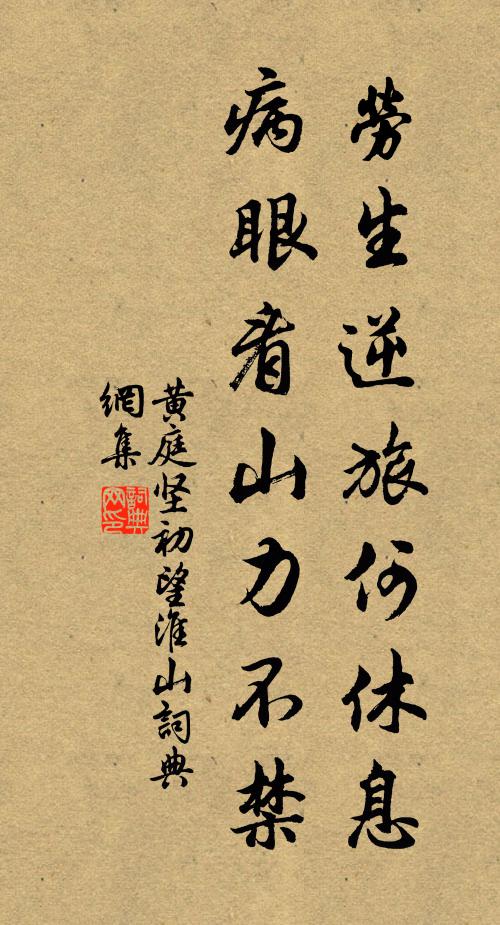 勞生逆旅何休息
病眼看山力不禁
黄庭坚初望淮山詞典
網集
詞典
网印